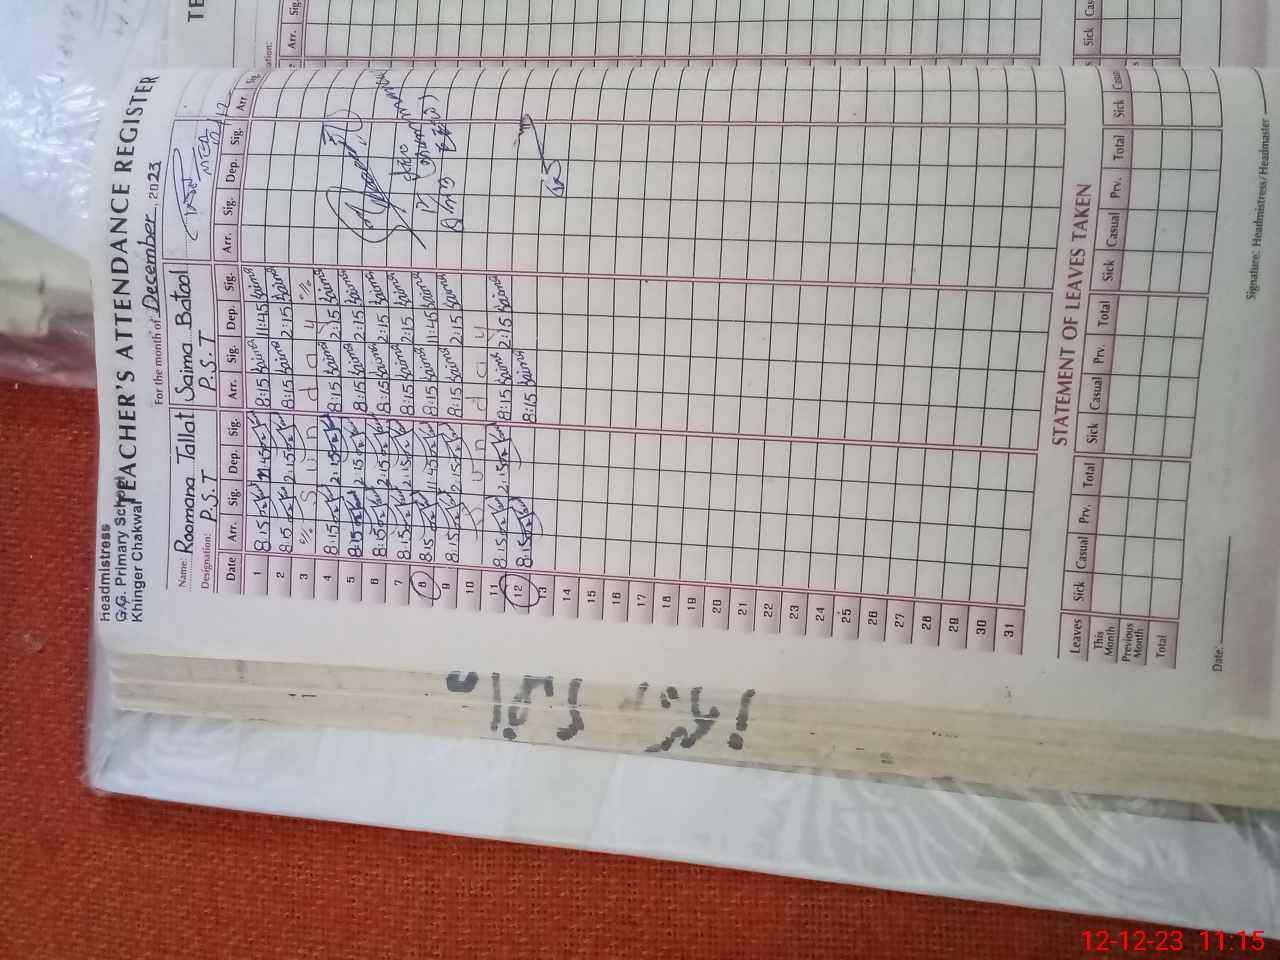 Headmistress
G.G. Primary School
Khinger Chakwal
TEACHER'S ATTENDANCE REGISTER
For the month of December, 2023
Name: Roomana Tallat Saima Batool
Designation: P.S.T P.S.T
Date Arr. Sig. Dep. Sig. Arr. Sig. Dep. Sig. Arr. Sig. Dep. Sig. Arr. Sig.
1 8:15 11:45 8:15 Saima 11:45 Saima
2 8:15 2:15 8:15 Saima 2:15 Saima
3 % Sunday %
4 8:15 2:15 8:15 Saima 2:15 Saima
5 8:15 2:15 8:15 Saima 2:15 Saima
6 8:15 2:15 8:15 Saima 2:15 Saima
7 8:15 2:15 8:15 Saima 2:15 Saima
8 8:15 11:45 8:15 Saima 11:45 Saima
9 8:15 2:15 8:15 Saima 2:15 Saima
10 Sunday
11 8:15 2:15 8:15 Saima 2:15 Saima
12 8:15 8:15 Saima
13
14
15
16
17
18
19
20
21
22
23
24
25
26
27
28
29
30
31
STATEMENT OF LEAVES TAKEN
Leaves Sick Casual Prv. Total Sick Casual Prv. Total Sick Casual Prv. Total Sick
This Month
Previous Month
Total
Date: Signature: Headmistress/Headmaster
12-12-23 11:15